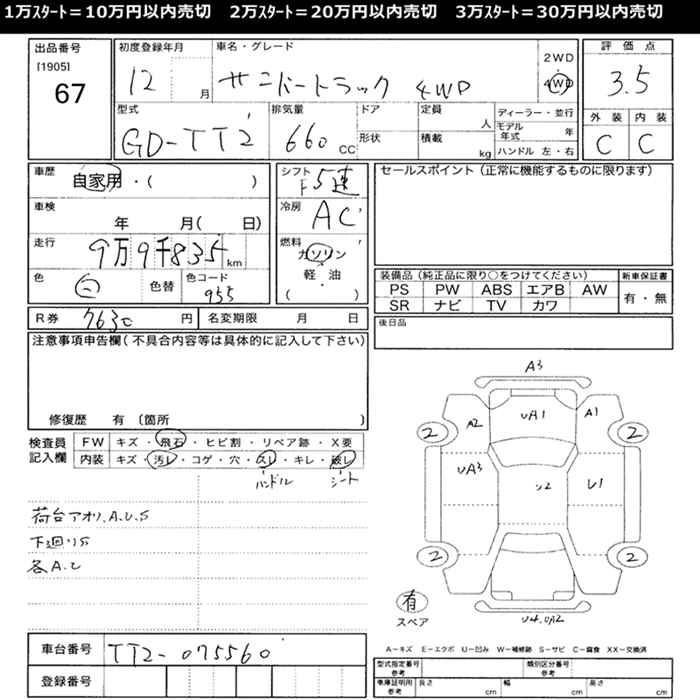 1万スタート=10万円以内売切　2万スタート=20万円以内売切　3万スタート=30万円以内売切
出品番号
[1905]
67
初度登録年月
12 月
車名・グレード
サニトートラック 4WD
2WD
4WD
評価点
3.5
型式
GD-TT2
排気量
660 CC
ドア
形状
定員
人
積載
kg
ディーラー・並行
モデル年式 年
ハンドル 左・右
外装 内装
C C
車歴
自家用・( )
車検
年 月( 日)
走行
9万9千835 km
色
白
色替
色コード
955
シフト
F5速
冷房
AC
燃料
ガソリン
軽・油
( )
セールスポイント(正常に機能するものに限ります)
装備品(純正品に限り○をつけてください)
PS PW ABS エアB AW
SR ナビ TV カワ
新車保証書
有・無
R券 7630 円
名変期限 月 日
後日品
注意事項申告欄(不具合内容等は具体的に記入して下さい)
修復歴 有 (箇所 )
検査員記入欄
FW キズ・飛石・ヒビ割・リペア跡・X要
内装 キズ・汚レ・コゲ・穴・スレ・キレ・破レ
ハンドル シート
荷台アオリ.A.U.S
下廻りS
各A.U
A3
A2
UA1
A1
2
2
UA3
U2
U1
2
2
有
スペア
U4.UA2
A-キズ E-エクボ U-凹み W-補修跡 S-サビ C-腐食 XX-交換済
車台番号 TT2-075560
登録番号
型式指定番号 参考
類別区分番号 参考
車庫証明用 参考
長さ cm
幅 cm
高さ cm